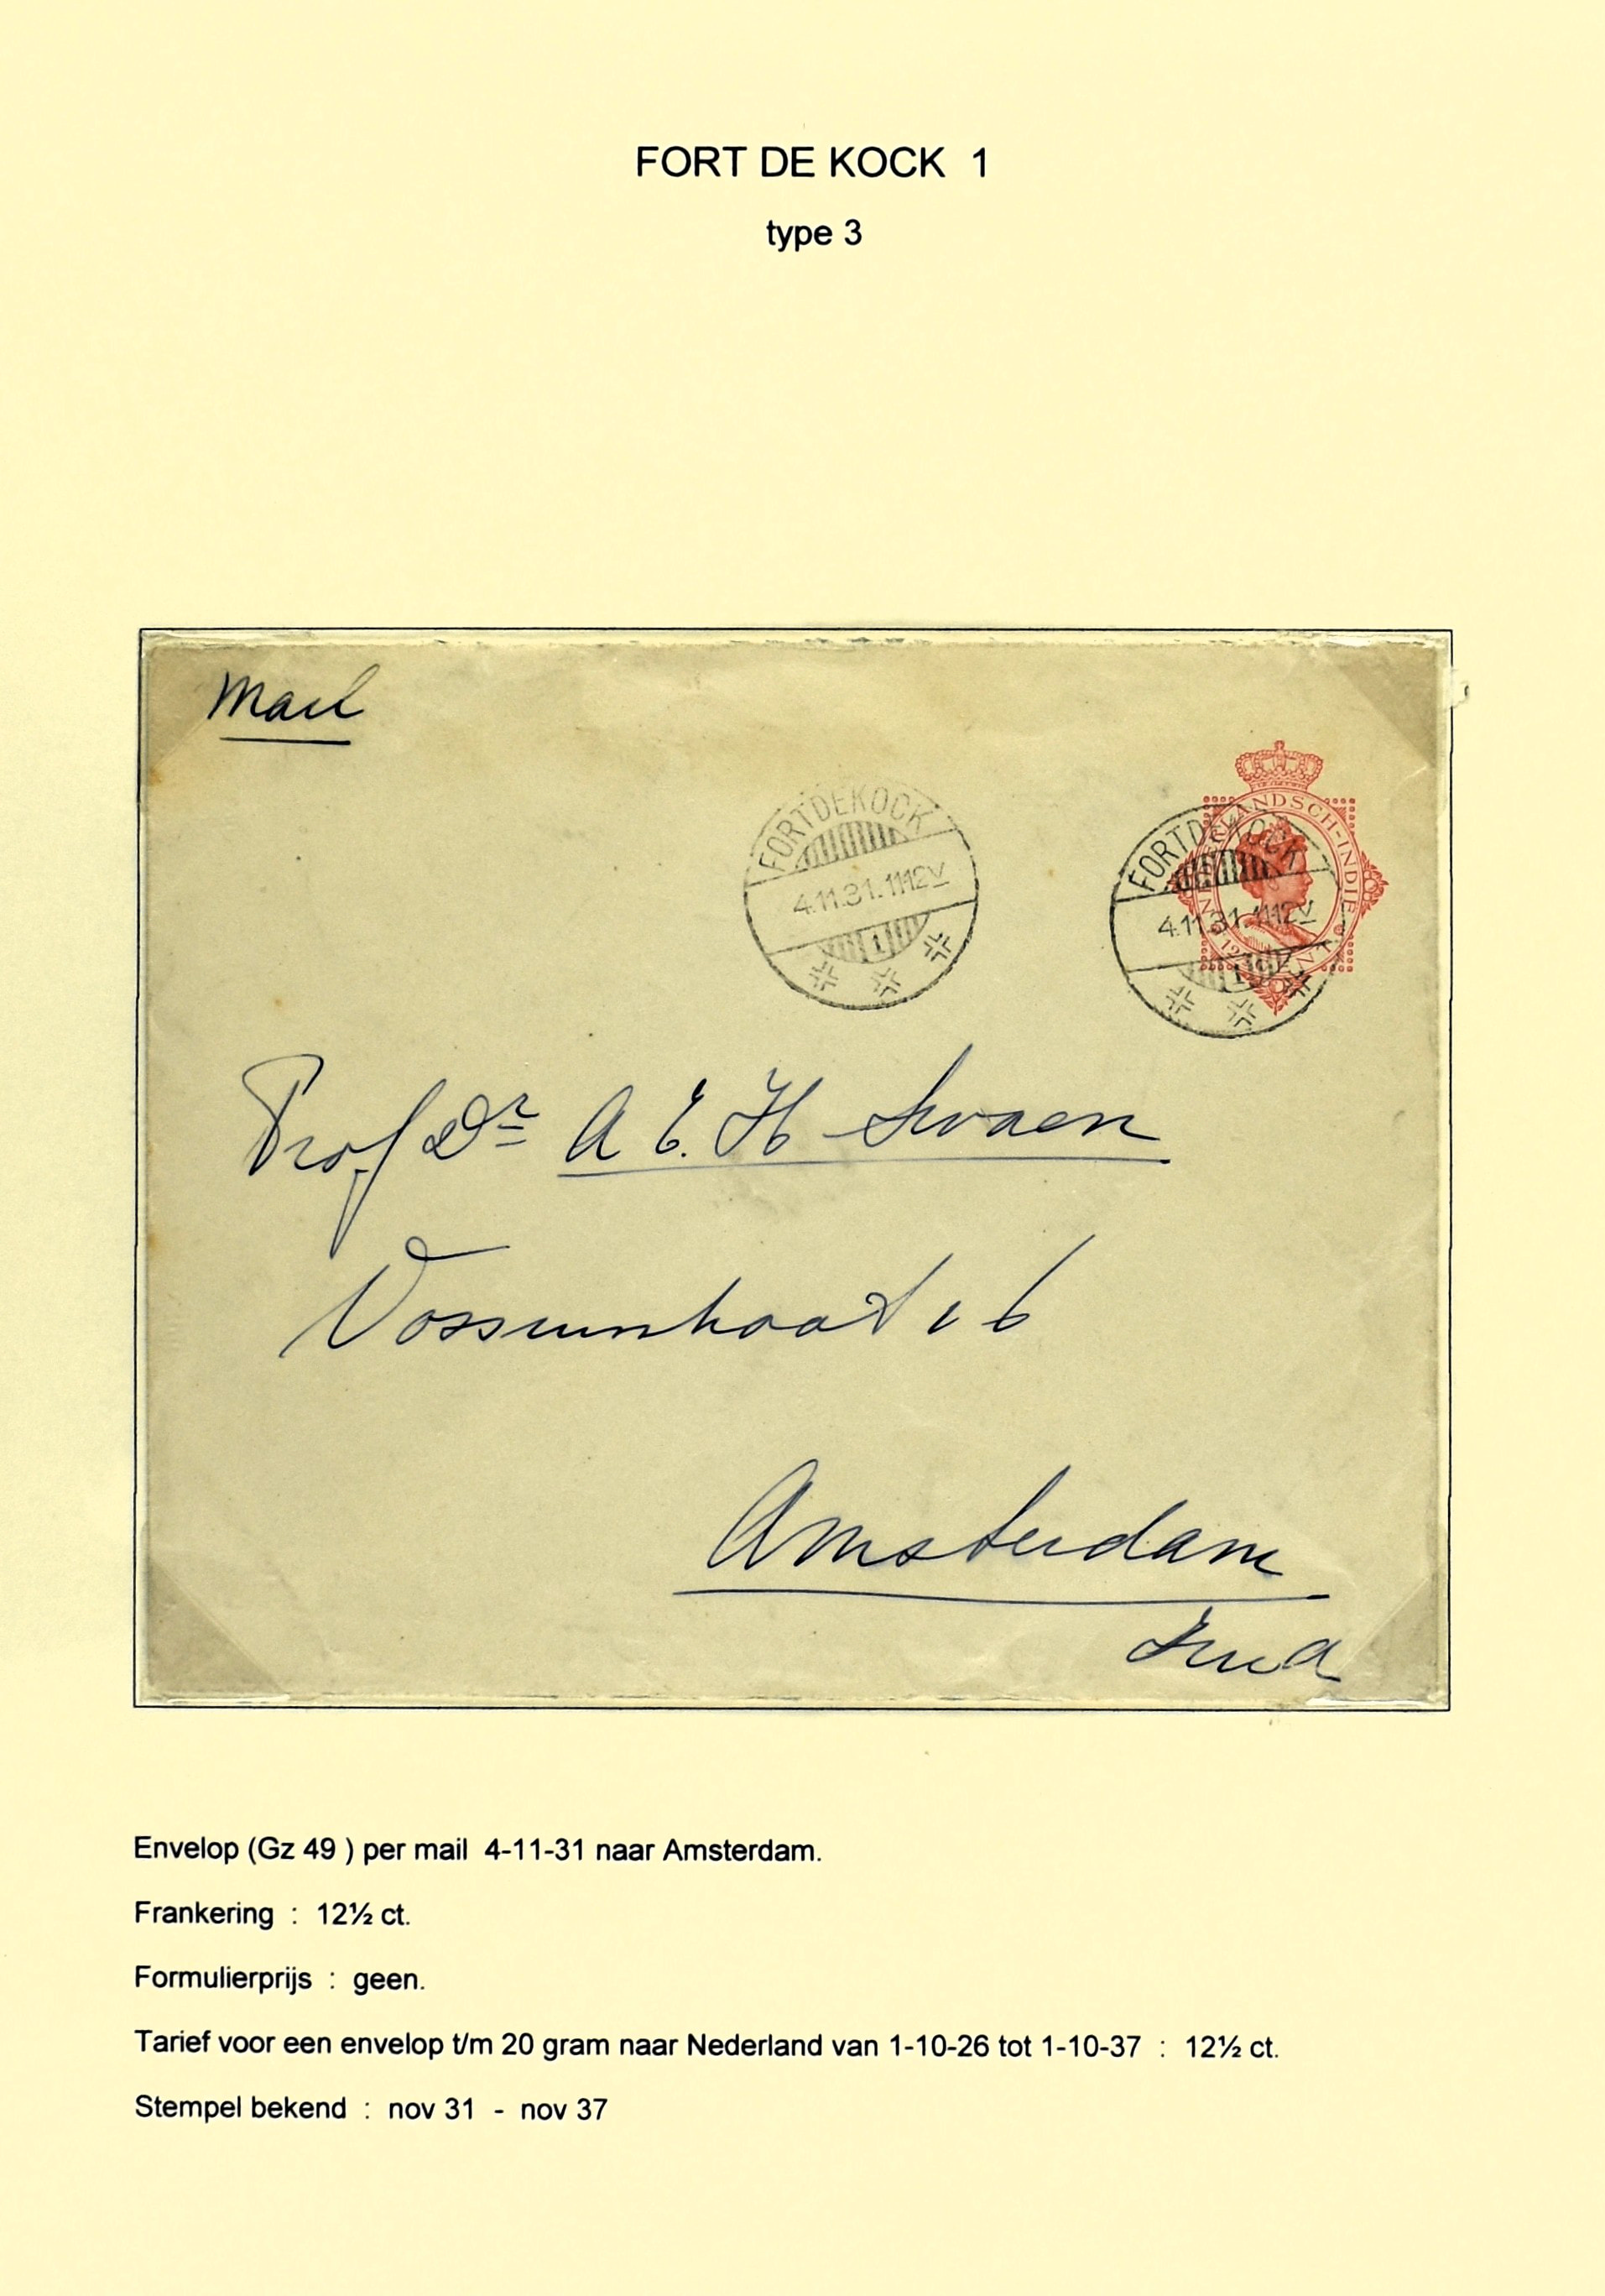 FORT DE KOCK 1
type 3
Mail
FORTDEKOCK
4.11.31.1112V
1
NEDERLANDSCH-INDIE
FORTDEKOCK
4.11.31.1112V
1
Prof Dr A E. H Swaen
Vossiusstraat 16
Amsterdam
Envelop (Gz 49 ) per mail 4-11-31 naar Amsterdam.
Frankering : 12½ ct.
Formulierprijs : geen.
Tarief voor een envelop t/m 20 gram naar Nederland van 1-10-26 tot 1-10-37 : 12½ ct.
Stempel bekend : nov 31 - nov 37